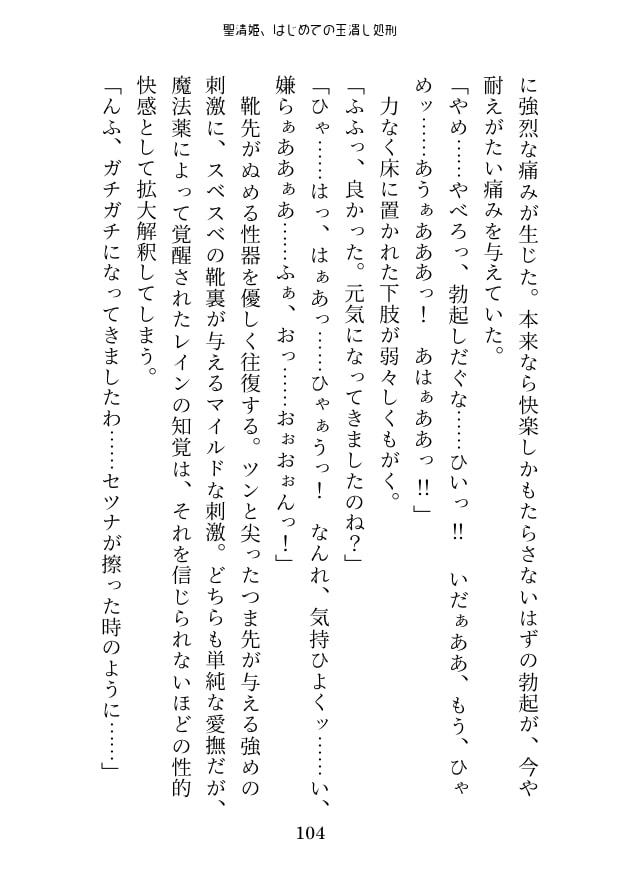 聖清姫、はじめての玉潰し処刑
に強烈な痛みが生じた。本来なら快楽しかもたらさないはずの勃起が、今や
耐えがたい痛みを与えていた。
「やめ……やべろっ、勃起しだぐな……ひいっ!! いだぁああ、もう、ひゃ
めッ……あうぁあああっ! あはぁああっ!!」
力なく床に置かれた下肢が弱々しくもがく。
「ふふっ、良かった。元気になってきましたのね?」
「ひゃ……はっ、はぁあっ……ひゃぁうっ! なんれ、気持ひよくッ……い、
嫌らぁああぁあ……ふぁ、おっ……おぉおぉんっ!」
靴先がぬめる性器を優しく往復する。ツンと尖ったつま先が与える強めの
刺激に、スベスベの靴裏が与えるマイルドな刺激。どちらも単純な愛撫だが、
魔法薬によって覚醒されたレインの知覚は、それを信じられないほどの性的
快感として拡大解釈してしまう。
「んふ、ガチガチになってきましたわ……セツナが擦った時のように……」
104